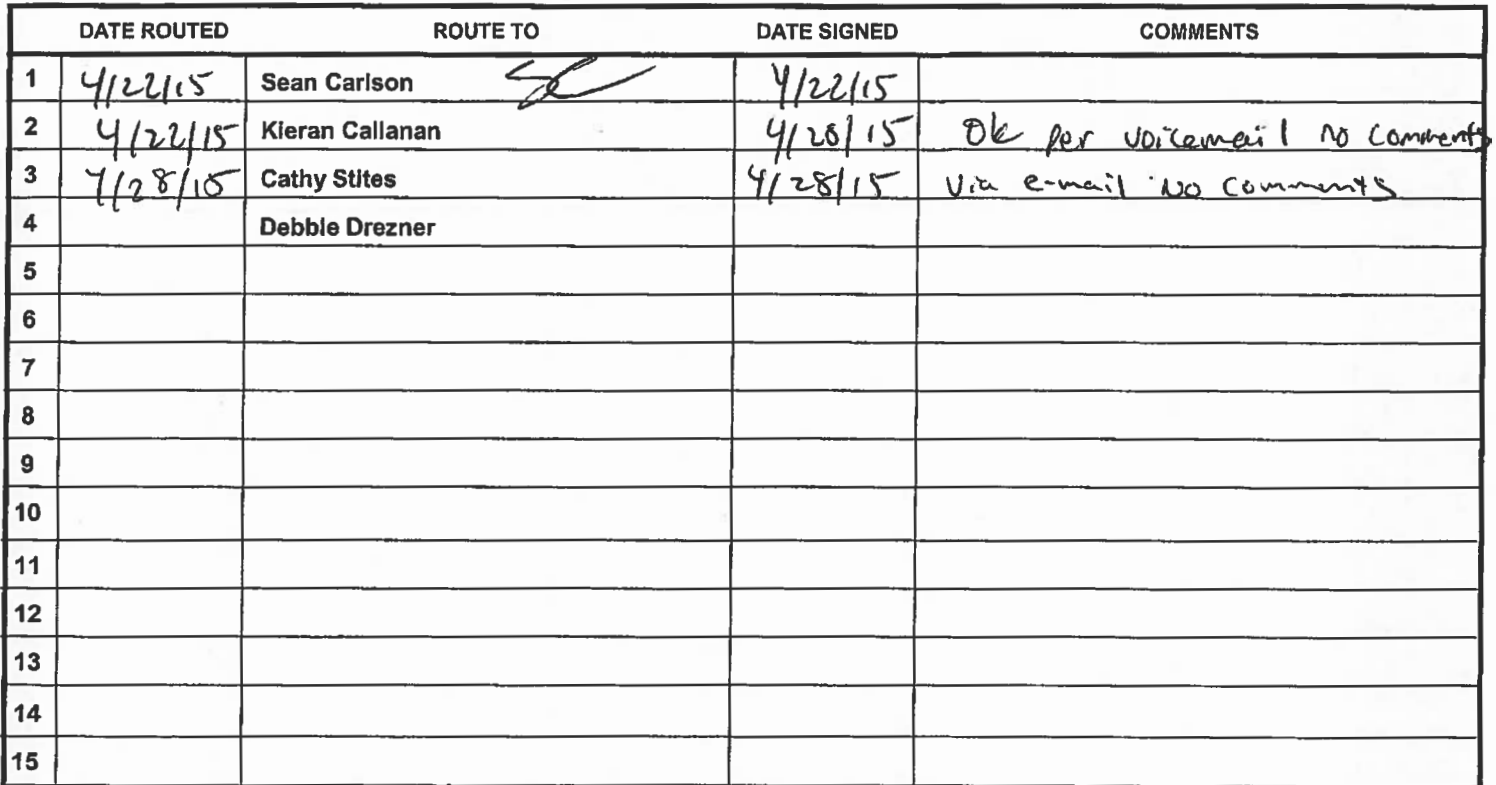 DATE ROUTED ROUTE TO DATE SIGNED COMMENTS
1 4/22/15 Sean Carlson SC 4/22/15
2 4/22/15 Kieran Callanan 4/28/15 Ok per voicemail no comments
3 4/28/15 Cathy Stites 4/28/15 Via e-mail No Comments
4 Debbie Drezner
5
6
7
8
9
10
11
12
13
14
15